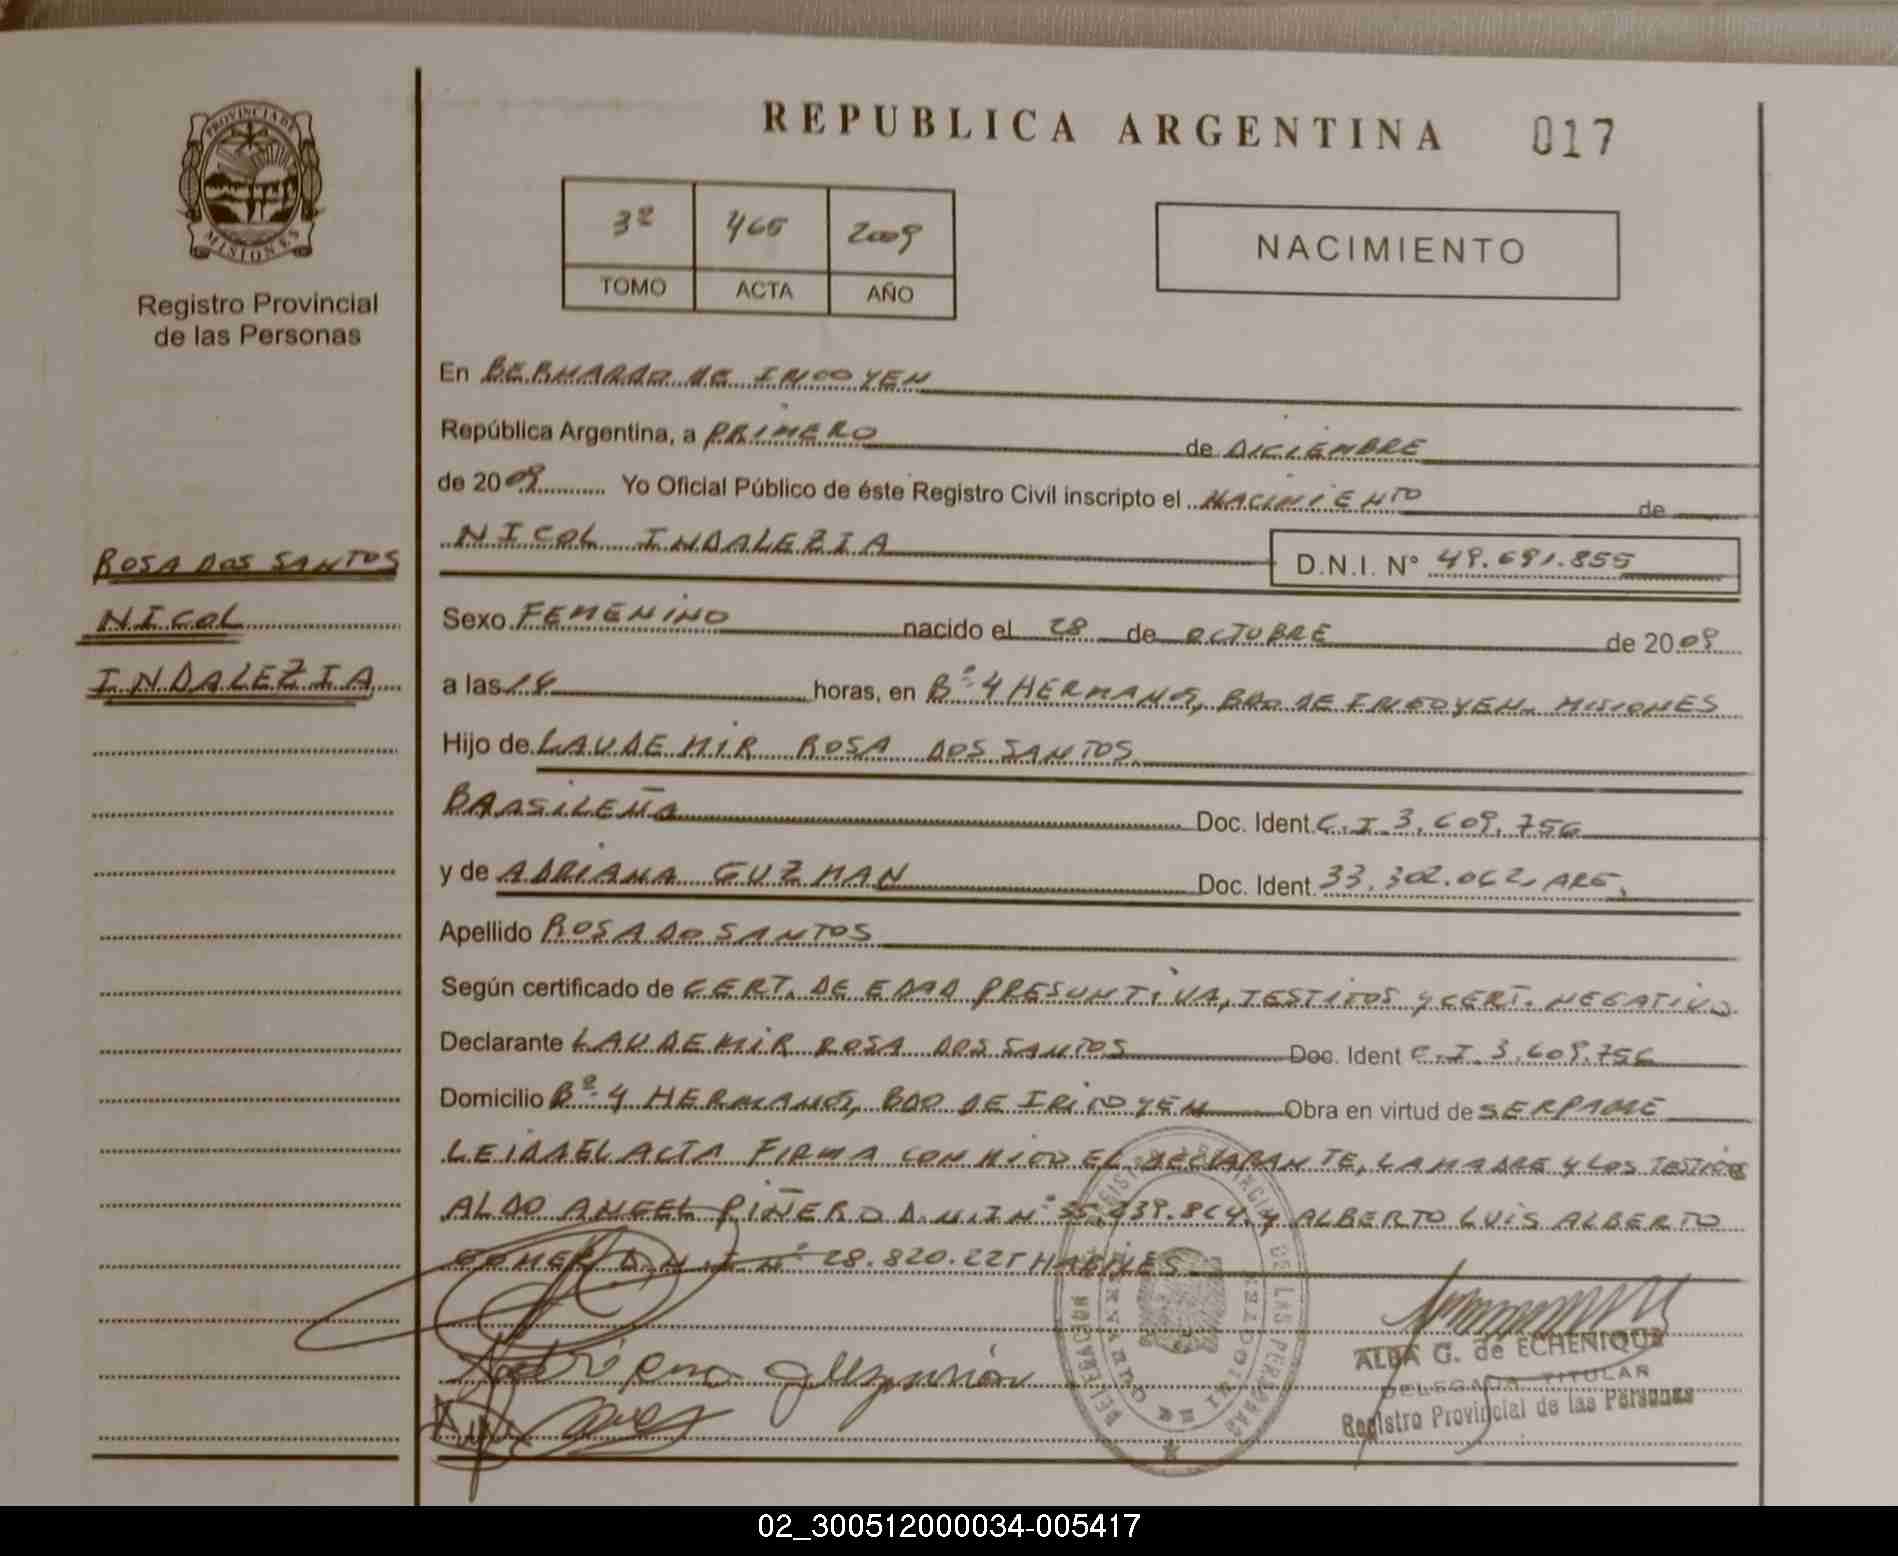 REPUBLICA ARGENTINA 017
PROVINCIA DE
MISIONES
Registro Provincial
de las Personas
3º 465 2009
TOMO ACTA AÑO
NACIMIENTO
En BERNARDO DE IRIGOYEN
República Argentina, a PRIMERO de DICIEMBRE
de 2009 Yo Oficial Público de éste Registro Civil inscripto el NACIMIENTO de
NICOL INDALEZIA D.N.I. Nº 49.691.855
ROSA DOS SANTOS
NICOL
INDALEZIA
Sexo FEMENINO nacido el 28 de OCTUBRE de 2009
a las 18 horas, en Bº 4 HERMANOS, BDO DE IRIGOYEN. MISIONES
Hijo de LAUDEMIR ROSA DOS SANTOS
BRASILEÑA Doc. Ident. C.I. 3.609.756
y de ADRIANA GUZMAN Doc. Ident. 33.302.062, ARG.
Apellido ROSA DO SANTOS
Según certificado de CERT. DE EDAD PRESUNTIVA, TESTIGOS y CERT. NEGATIVO
Declarante LAUDEMIR ROSA DOS SANTOS Doc. Ident C.I. 3.609.756
Domicilio Bº 4 HERMANOS, BDO DE IRIGOYEN Obra en virtud de SER PADRE
LEIDA EL ACTA FIRMA CONMIGO EL DECLARANTE, LA MADRE y LOS TESTIGOS
ALDO ANGEL PIÑERO D.N.I Nº y ALBERTO LUIS ALBERTO
GOMEZ D.N.I Nº 28.820.225 HABILES
Adriana Guzmán
ALBA G. de ECHENIQUE
DELEGADA TITULAR
Registro Provincial de las Personas
02_300512000034-005417